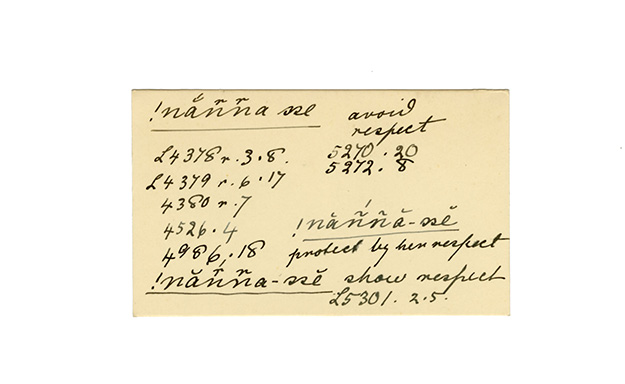 !nắn̆n̆a sse avoid
respect
L4378 r. 3. 8. 5270. 20
L4379 r. 6. 17 5272. 8
4380 r. 7
4526. 4 !nắn̆n̆ă-ssĕ
4986. 18 protect by her respect
!nắn̆n̆a-ssĕ show respect
L5301. 2. 5.